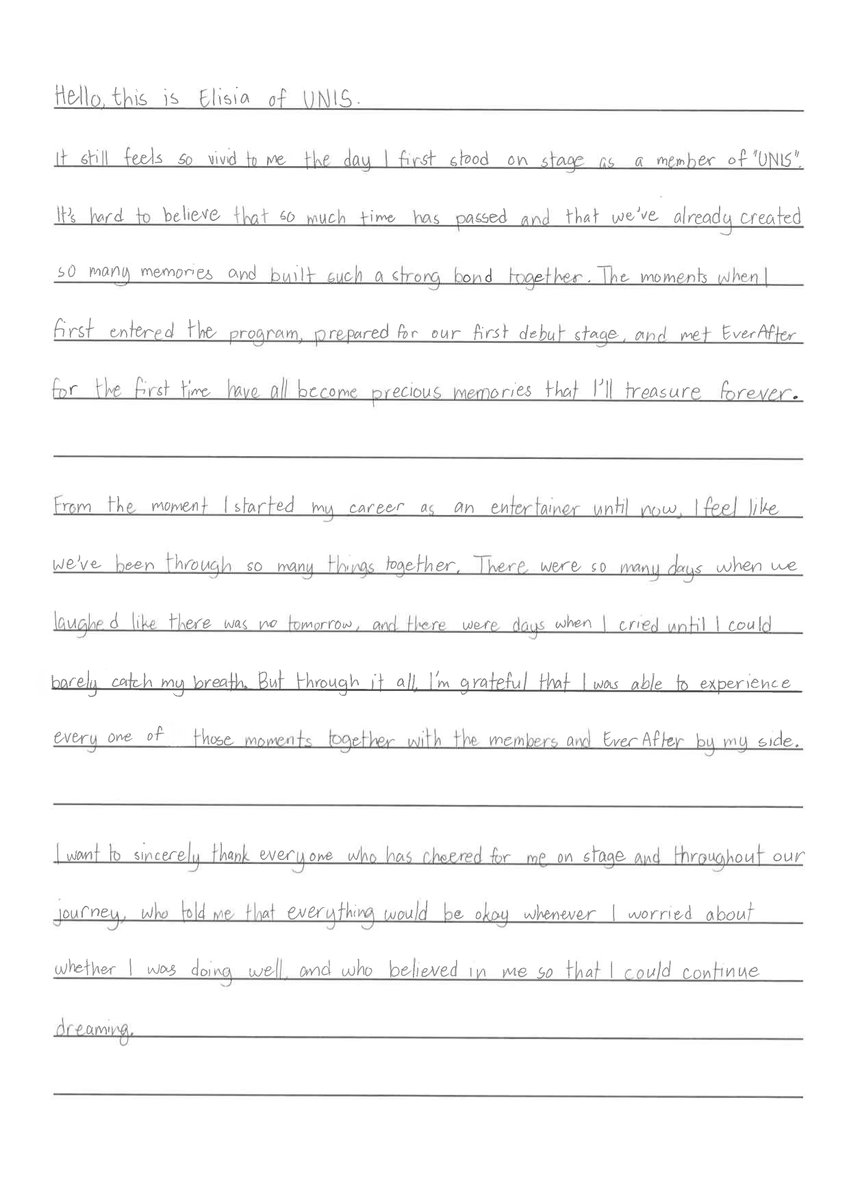 Hello, this is Elisia of UNIS.
It still feels so vivid to me the day I first stood on stage as a member of "UNIS".
It's hard to believe that so much time has passed and that we've already created
so many memories and built such a strong bond together. The moments when I
first entered the program, prepared for our first debut stage, and met EverAfter
for the first time have all become precious memories that I'll treasure forever.
From the moment I started my career as an entertainer until now, I feel like
we've been through so many things together. There were so many days when we
laughed like there was no tomorrow, and there were days when I cried until I could
barely catch my breath. But through it all, I'm grateful that I was able to experience
every one of those moments together with the members and EverAfter by my side.
I want to sincerely thank everyone who has cheered for me on stage and throughout our
journey, who told me that everything would be okay whenever I worried about
whether I was doing well, and who believed in me so that I could continue
dreaming.